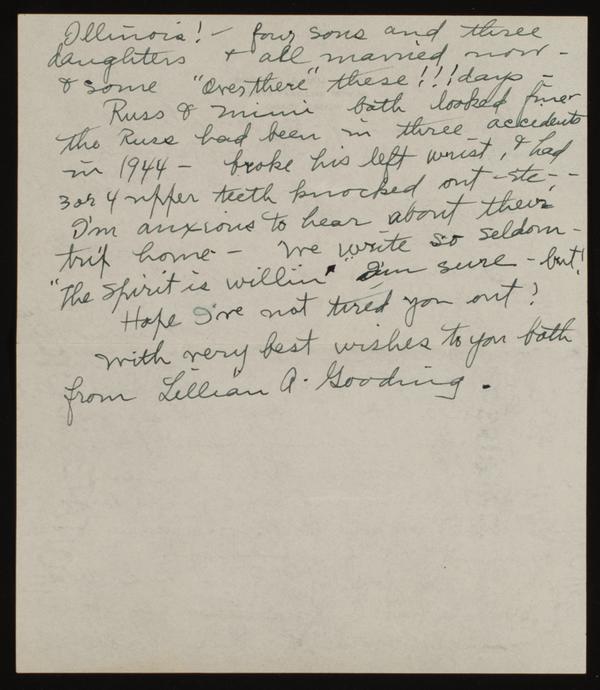 Illinois! - four sons and three
daughters & all married now -
& some "Over there" these!!! days -
Russ & Mimi both looked finer
tho Russ had been in three accedents
in 1944 - broke his left wrist, & had
3 or 4 upper teeth knocked out - etc, -
I'm anxious to hear about their
trip home - We write so seldom -
"the spirit is willin'" I'm sure - but!
Hope I've not tired you out?
With very best wishes to you both
from Lillian A. Gooding.